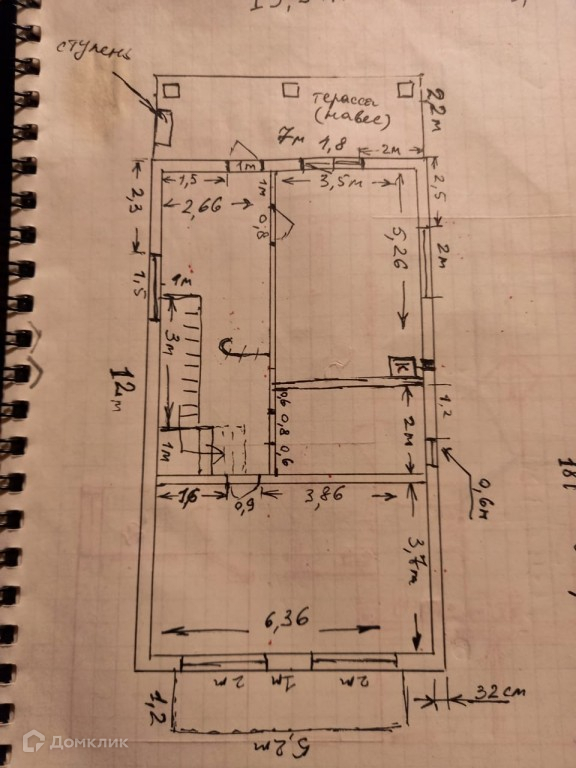 ступень
терасса
(навес)
2,2м
7м
1,8
2м
1м
1,5
2,66
1м
3,5м
0,8
2,3
1,5
2,5
2м
5,26
1м
3м
12м
К
1,2
0,6
0,8
0,6
2м
1м
1,6
0,9
3,86
0,6м
3,7м
6,36
2м
1м
2м
32см
1,2
5,2м
Домклик